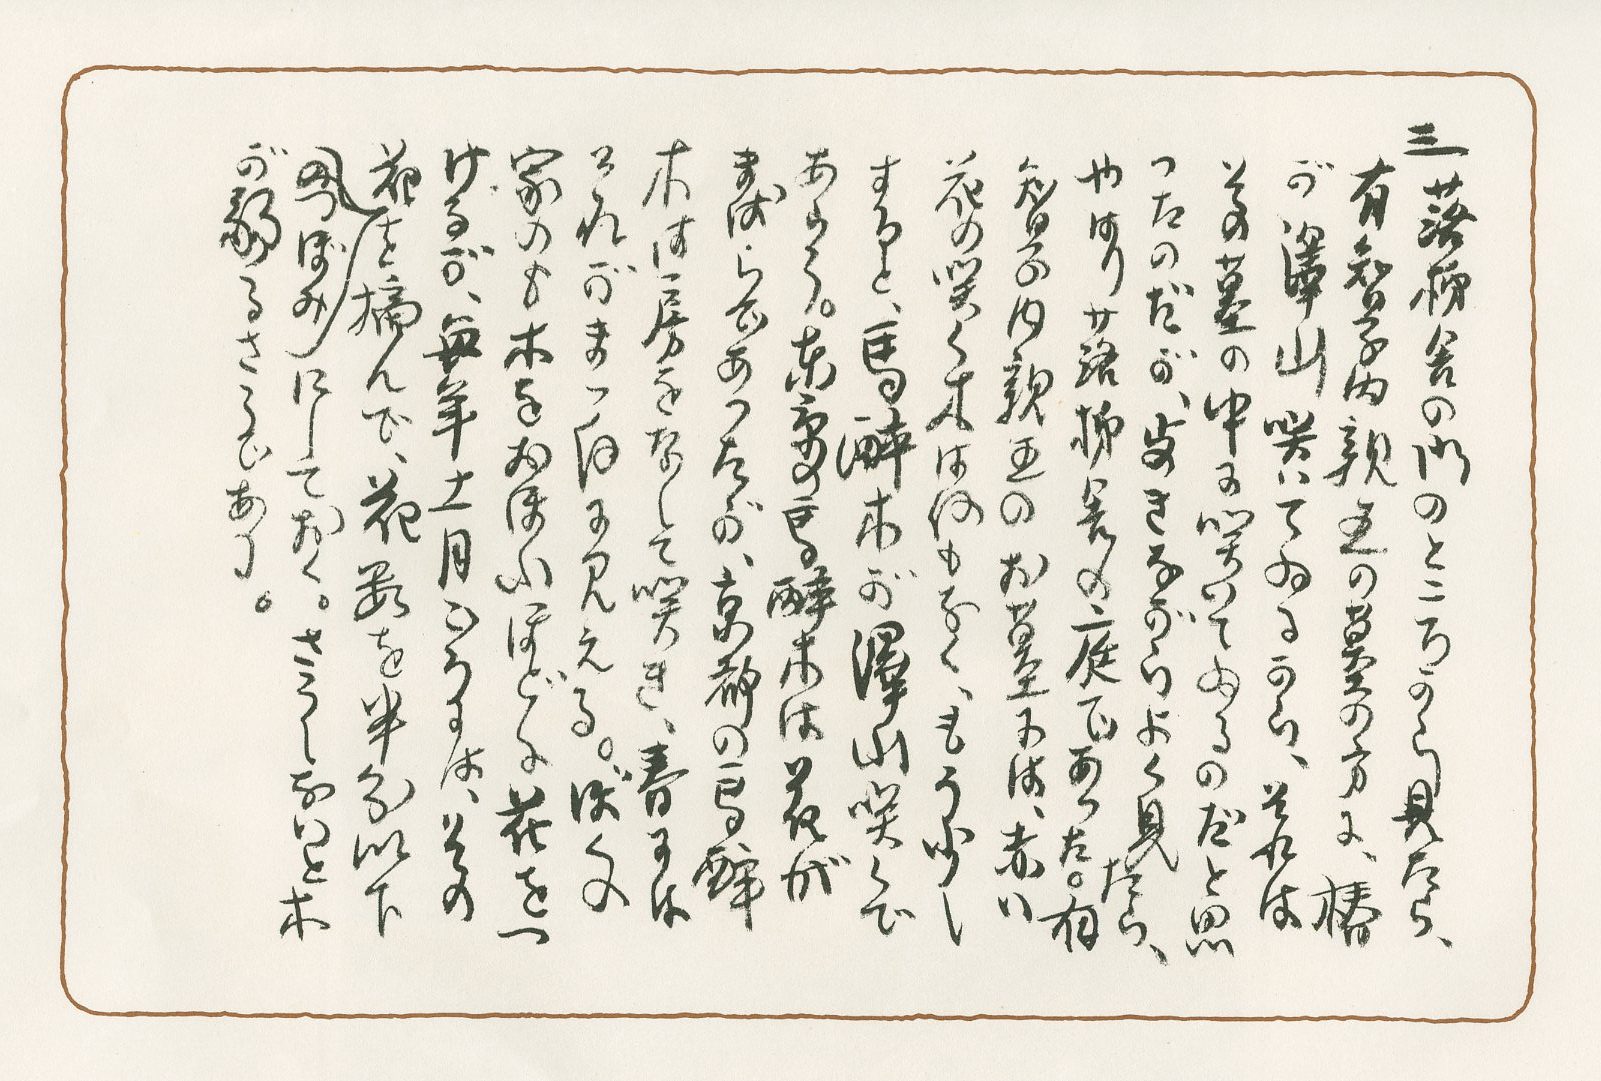 三 落柿舎の門のところから見たら、
有智子内親王の墓の方に、椿
が澤山咲いてゐるから、それは
その墓の中に咲いてゐるのだと思
つたのだが、歩きながらよく見たら、
やはり落柿舎の庭であつた。有
智子内親王のお墓には、赤い
花の咲く木は何もなく、もう少し
すると、馬酔木が澤山咲くで
あらう。東京の馬酔木は花が
まばらであつたが、京都の馬酔
木は房をなして咲き、春には
それがまつ白に見える。ぼくの
家のも木をおほふほどに花をつ
けるが、毎年十一月ごろには、その
花を摘んで、花数を半分以下
にしておく。さうしないと木
が弱るさうである。